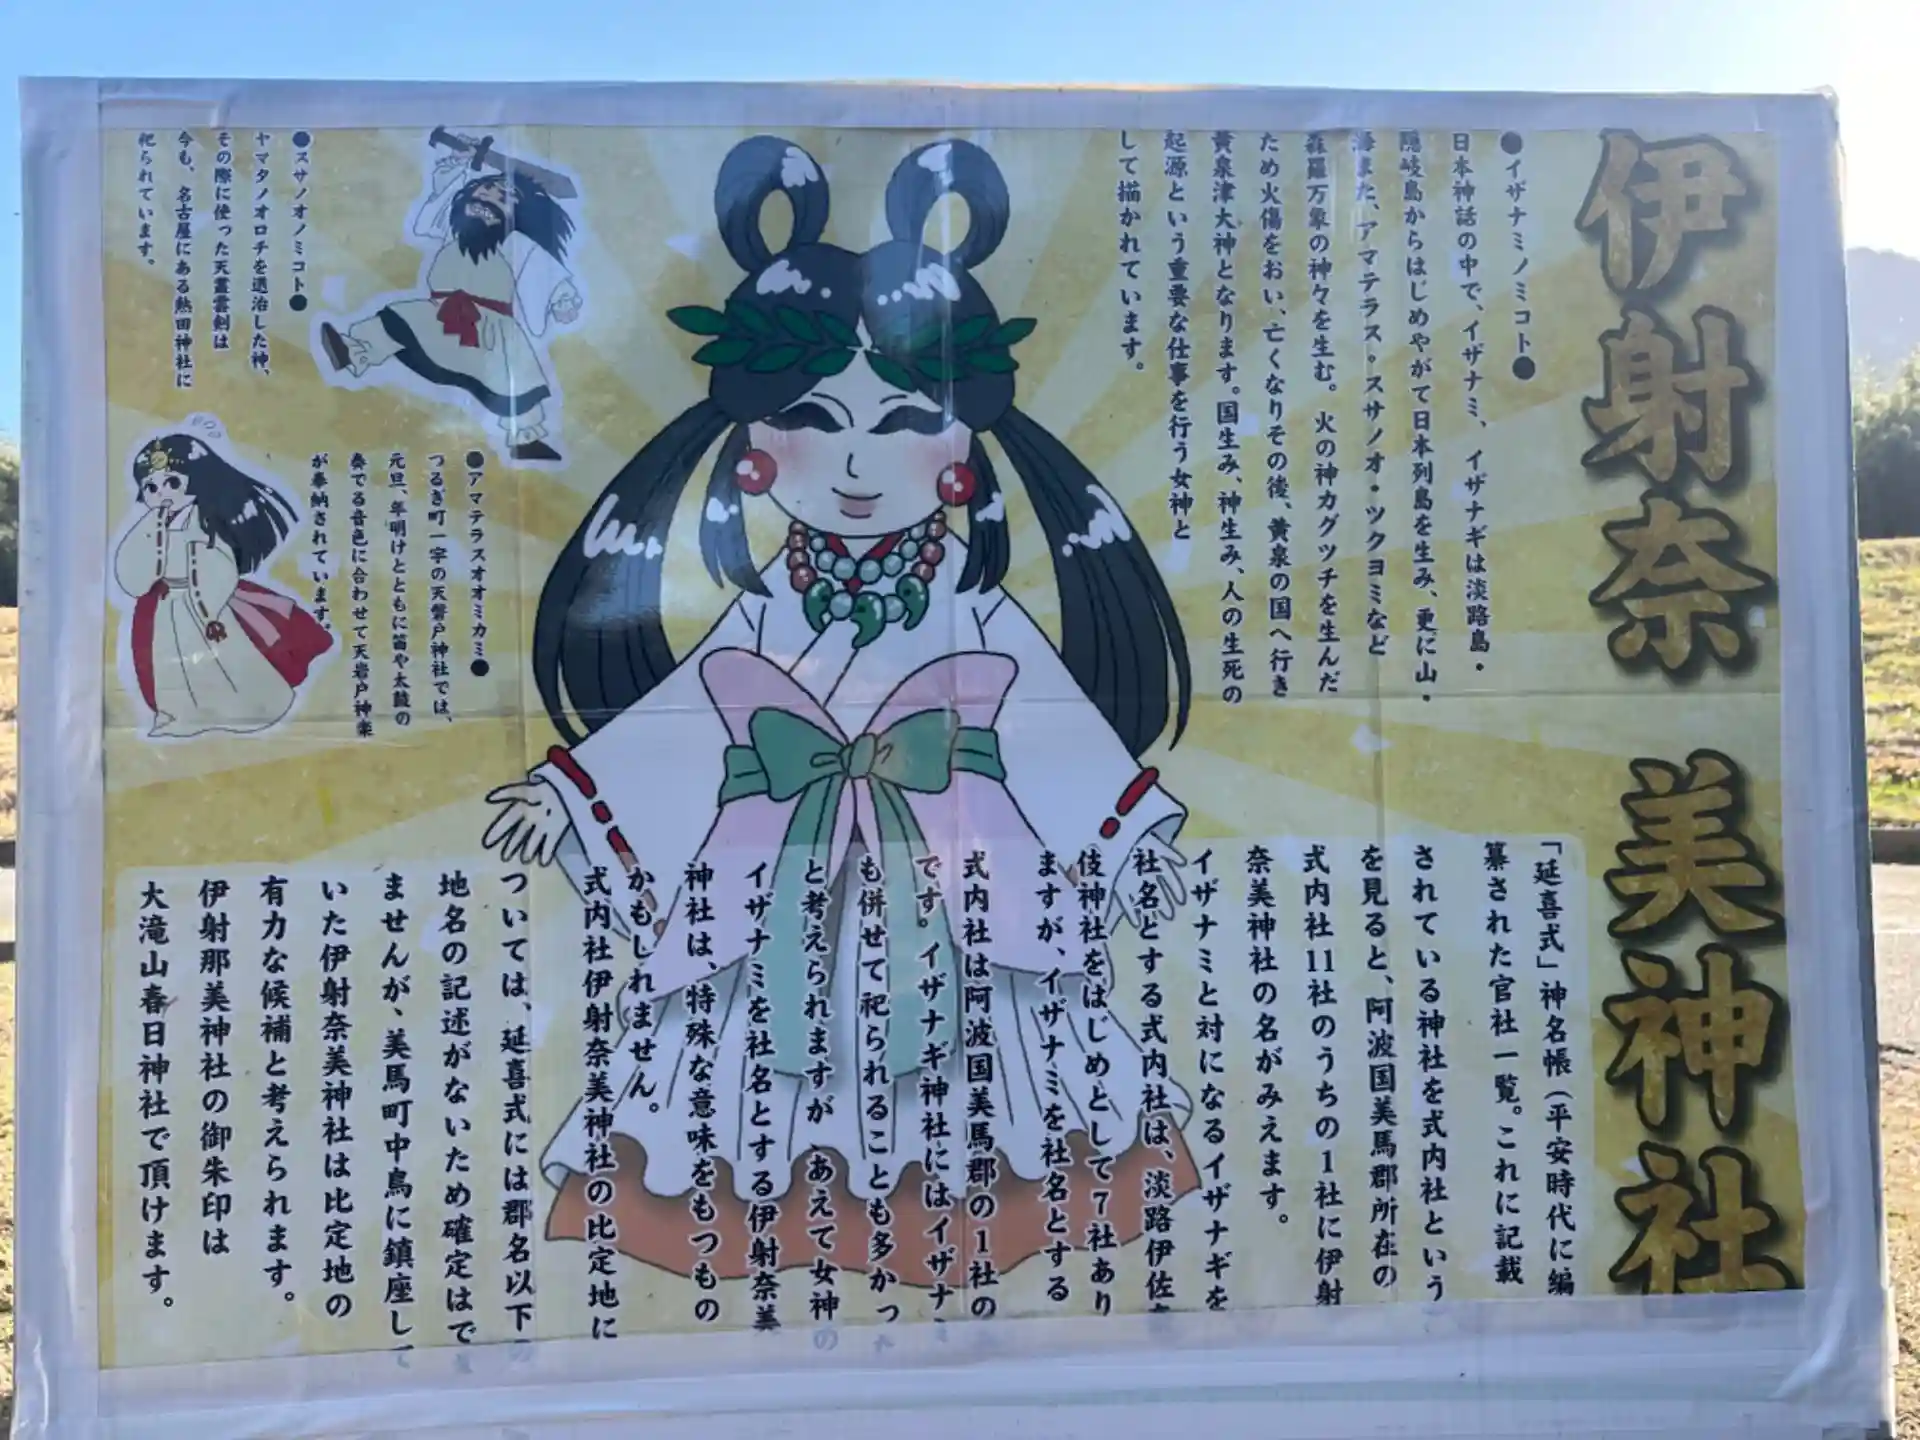 伊射奈美神社
●イザナミノミコト●
日本神話の中で、イザナミ、イザナギは淡路島・
隠岐島からはじめやがて日本列島を生み、更に山・
海また、アマテラス・スサノオ・ツクヨミなど
森羅万象の神々を生む。火の神カグツチを生んだ
ため火傷をおい、亡くなりその後、黄泉の国へ行き
黄泉津大神となります。国生み、神生み、人の生死の
起源という重要な仕事を行う女神と
して描かれています。
●スサノオノミコト●
ヤマタノオロチを退治した神、
その際に使った天叢雲剣は
今も、名古屋にある熱田神社に
祀られています。
●アマテラスオオミカミ●
つるぎ町一宇の天磐戸神社では、
元旦、年明けとともに笛や太鼓の
奏でる音色に合わせて天岩戸神楽
が奉納されています。
「延喜式」神名帳(平安時代に編
纂された官社一覧。これに記載
されている神社を式内社という
を見ると、阿波国美馬郡所在の
式内社11社のうちの1社に伊射
奈美神社の名がみえます。
イザナミと対になるイザナギを
社名とする式内社は、淡路伊佐奈
伎神社をはじめとして7社あり
ますが、イザナミを社名とする
式内社は阿波国美馬郡の1社の
です。イザナギ神社にはイザナミ
も併せて祀られることも多かった
と考えられますが あえて女神の
イザナミを社名とする伊射奈美
神社は、特殊な意味をもつもの
かもしれません。
式内社伊射奈美神社の比定地に
ついては、延喜式には郡名以下の
地名の記述がないため確定はでき
ませんが、美馬町中鳥に鎮座して
いた伊射奈美神社は比定地の
有力な候補と考えられます。
伊射那美神社の御朱印は
大滝山春日神社で頂けます。